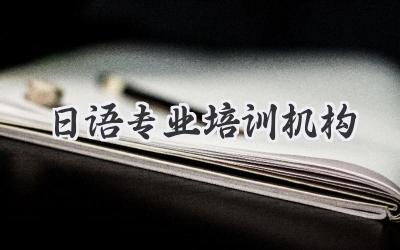 日语专业培训机构